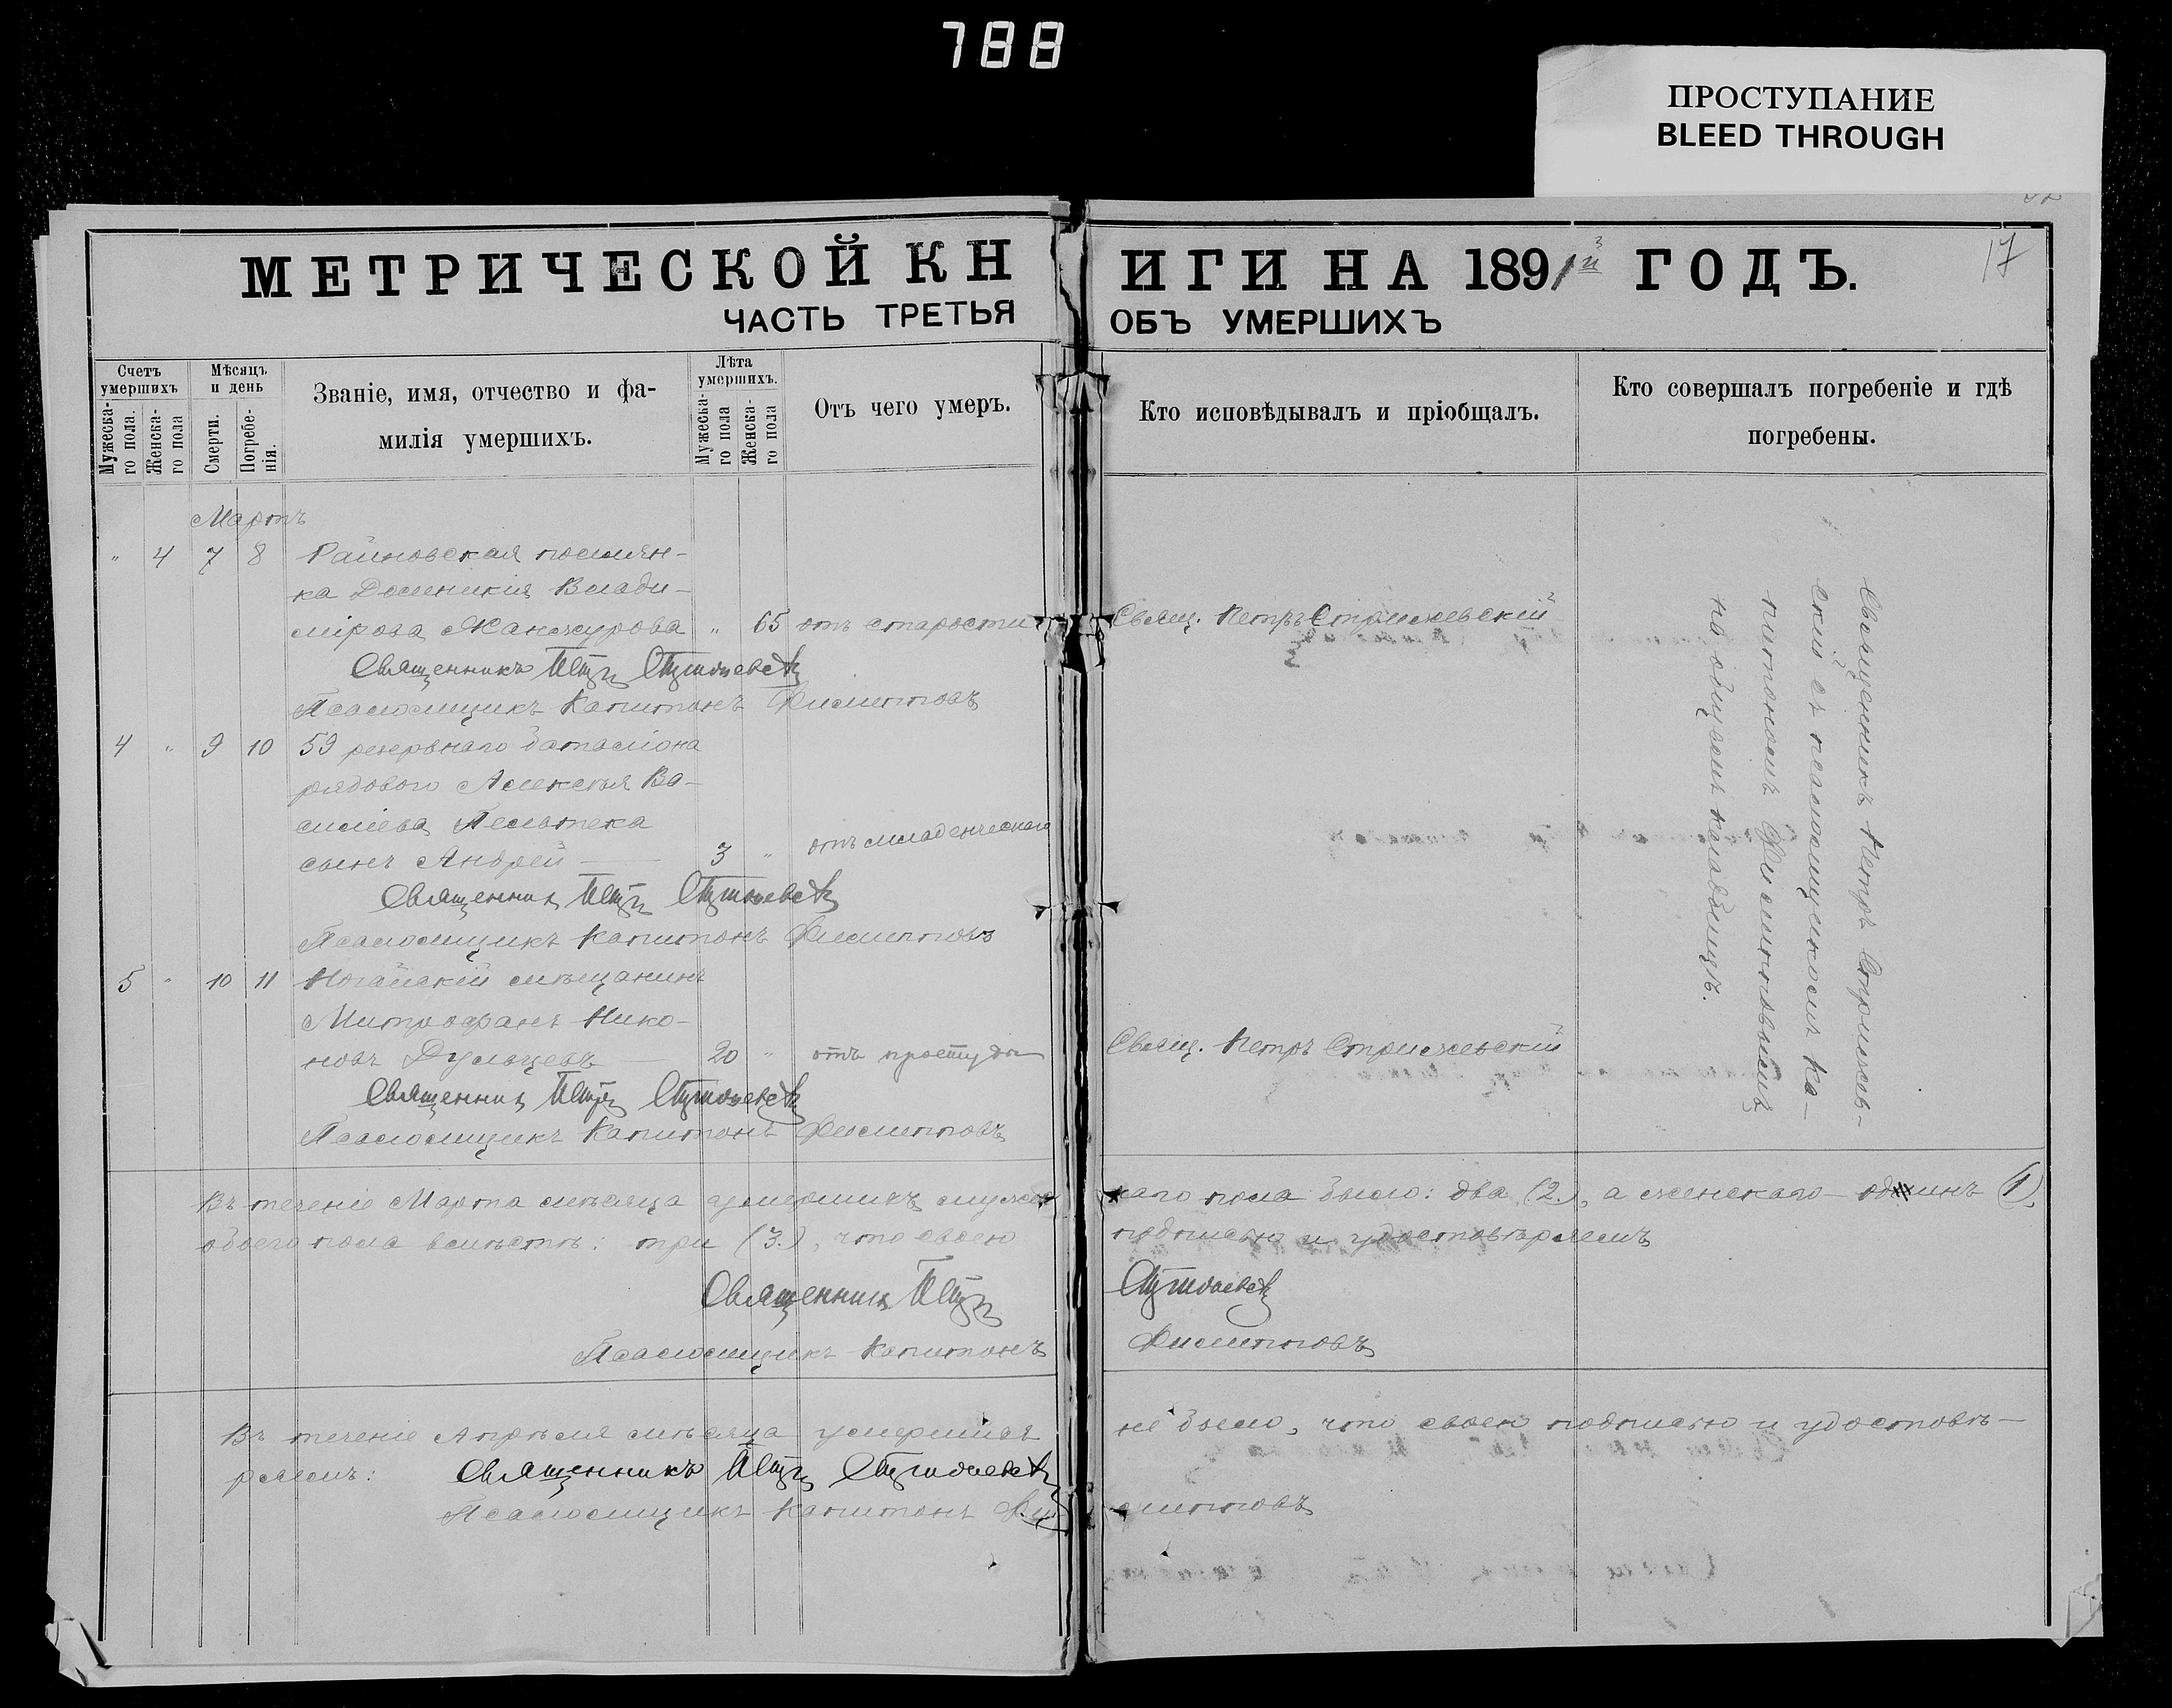 788
ПРОСТУПАНИЕ
BLEED THROUGH
17
МЕТРИЧЕСКОЙ КНИГИ НА 1891й ГОДЪ.
ЧАСТЬ ТРЕТЬЯ ОБЪ УМЕРШИХЪ
Счетъ умершихъ
Мужеска-
го пола.
Женска-
го пола
Мѣсяцъ и день
Смерти.
Погребе-
нія.
Званіе, имя, отчество и фа-
милія умершихъ.
Лѣта умершихъ.
Мужеска-
го пола
Женска-
го пола
Отъ чего умеръ.
Кто исповѣдывалъ и пріобщалъ.
Кто совершалъ погребеніе и гдѣ
погребены.
Мартъ
" 4 7 8 Райновская поселян-
ка Доменикія Влади-
мірова " 65 отъ старости Свящ. Петръ Стрижевскій
Священникъ Петръ Стрижевскій
Псаломщикъ Капитонъ Филипповъ
4 " 9 10 59 резервнаго баталіона
рядового Алексѣя Ва-
сильева
сынъ Андрей 3 " отъ младенческаго
Священникъ Петръ Стрижевскій
Псаломщикъ Капитонъ Филипповъ
5 " 10 11 Ногайскій мѣщанинъ
Митрофанъ Нико-
новъ Дульцевъ 20 " отъ простуды Свящ. Петръ Стрижевскій
Священникъ Петръ Стрижевскій
Псаломщикъ Капитонъ Филипповъ
Священникъ Петръ Стрижев-
скій съ псаломщикомъ Ка-
питономъ Филипповымъ
на общемъ кладбищѣ.
Въ теченіе Марта мѣсяца умершихъ мужескаго пола было: два (2.), а женскаго одинъ (1),
обоего пола вмѣстѣ: три (3.), что своею подписью и удостовѣряемъ
Священникъ Петръ Стрижевскій
Псаломщикъ Капитонъ Филипповъ
Въ теченіе Апрѣля мѣсяца умершихъ не было, что своею подписью и удостовѣ-
ряемъ: Священникъ Петръ Стрижевскій
Псаломщикъ Капитонъ Филипповъ